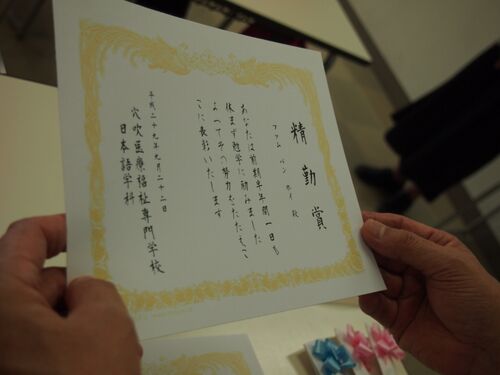 精勤賞
ファム バン ホイ 殿
あなたは前期半年間一日も
休まず勉学に励みました
よってその努力をたたえこ
こに表彰いたします
平成二十九年九月二十二日
穴吹医療福祉専門学校
日本語学科